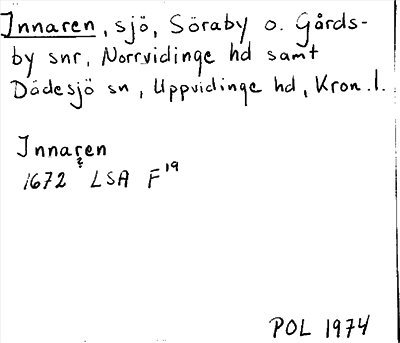 Innaren, sjö, Söraby o. Gårds-
by snr, Norrvidinge hd samt
Dädesjö sn, Uppvidinge hd, Kron.l.
Innaren
1672 LSA F19
POL 1974